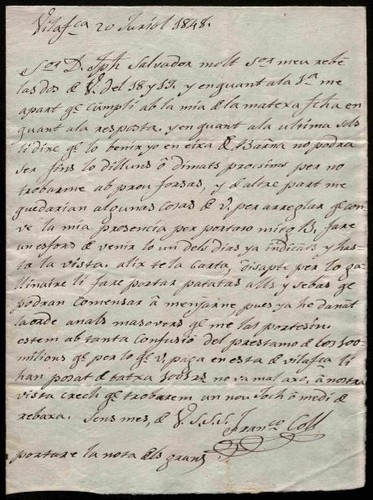 Vilafca 20 Juriol 1848.
Sor D. Jph Salvador molt Sor meu rebe
las dos de V. del 18 y 19. y en quant a la 1a me
apart qe cumpli ab la mia de la matexa fcha en
quant a la resposta. y en quant a la ultima sols
li dire qe lo benir yo en eixa de Barna no podra
ser fins lo dilluns ô dimats procsims per no
trobarme ab prou forsas, y de altre part me
quedarian algunas cosas de V. per arreglar qe con
ve la mia presencia per portaro mitg B. fare
un esfors de venir lo un dels dias ya indicats y has
ta la vista. alix te la carta, disapte per lo ga
llinaire li fare portar patatas alls y sebas qe
podran comensar â menjarne, pues ya he danat
la orde an als masovers qe me las portesin.
estem ab tanta confusio del prestamo de los 100
millions qe per lo qe V. paga en esta de vilafca li
han posat de tatxa 300 rs no va mal axo, â nostra
vista crech qe trobarem un nou Soch ô medi de
rebaxa. Sens mes, de V. S. S. S.
Franco Coll
portare la nota dels grans